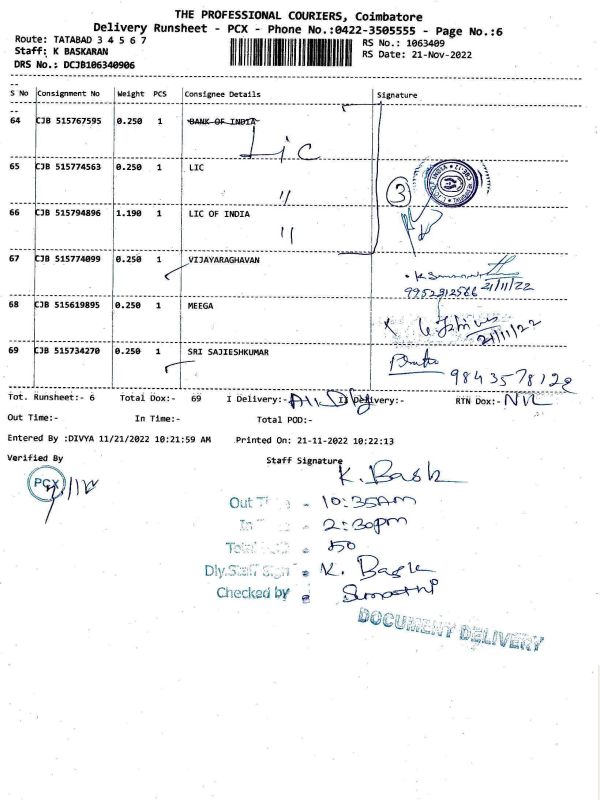 THE PROFESSIONAL COURIERS, Coimbatore
Delivery Runsheet - PCX - Phone No.:0422-3505555 - Page No.:6
Route: TATABAD 3 4 5 6 7 RS No.: 1063409
Staff: K BASKARAN RS Date: 21-Nov-2022
DRS No.: DCJB106340906
S No Consignment No Weight PCS Consignee Details Signature
64 CJB 515767595 0.250 1 BANK OF INDIA
Lic
65 CJB 515774563 0.250 1 LIC
"
3
66 CJB 515794896 1.190 1 LIC OF INDIA
"
67 CJB 515774099 0.250 1 VIJAYARAGHAVAN
21/11/22
9952912566
68 CJB 515619895 0.250 1 MEEGA
21/11/22
69 CJB 515734270 0.250 1 SRI SAJIESHKUMAR
9843578122
Tot. Runsheet:- 6 Total Dox:- 69 I Delivery:- All Dly II Delivery:- RTN Dox:- NIL
Out Time:- In Time:- Total POD:-
Entered By :DIVYA 11/21/2022 10:21:59 AM Printed On: 21-11-2022 10:22:13
Verified By Staff Signature
K. Bask
PCX
Out Ti - 10:35AM
In - 2:30pm
Total - 150
Dly.Staff Sign - K. Bask
Checked by - Sumathi
DOCUMENT DELIVERY